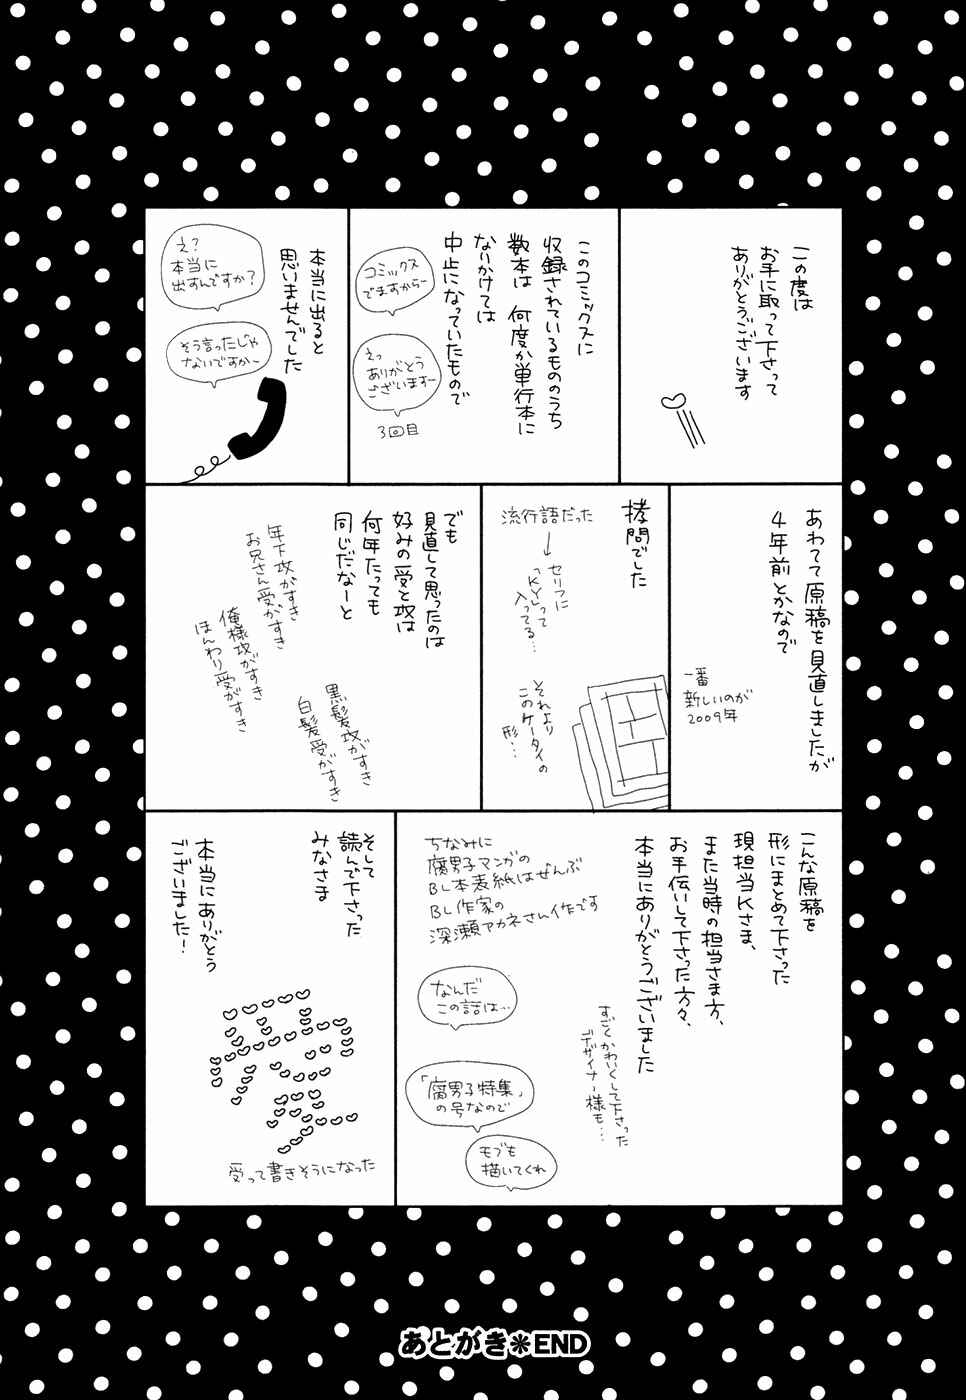 この度は
お手に取って下さって
ありがとうございます
このコミックスに
収録されているもののうち
数本は 何度か単行本に
なりかけては
中止になっていたもので
コミックス
でますからー
えっ
ありがとう
ございますー
3回目
本当に出ると
思いませんでした
え?
本当に
出すんですか?
そう言ったじゃ
ないですかー
あわてて原稿を見直しましたが
4年前とかなので
一番
新しいのが
2009年
拷問でした
流行語だった
セリフに
「KY」って
入ってる…
それより
このケータイの
形…
でも
見直して思ったのは
好みの受と攻は
何年たっても
同じだなーと
年下攻がすき
お兄さん受がすき
俺様攻がすき
ほんわり受がすき
黒髪攻がすき
白髪受がすき
こんな原稿を
形にまとめて下さった
現担当Kさま、
また当時の担当さま方、
お手伝いして下さった方々、
本当にありがとうございました
すごくかわいくして下さった
デザイナー様も…
ちなみに
腐男子マンガの
BL本表紙はぜんぶ
BL作家の
深瀬アカネさん作です
なんだ
この話は…
「腐男子特集」
の号なので
モブも
描いてくれ
そして
読んで下さった
みなさま
本当にありがとう
ございました!
愛
受って書きそうになった
あとがき＊END